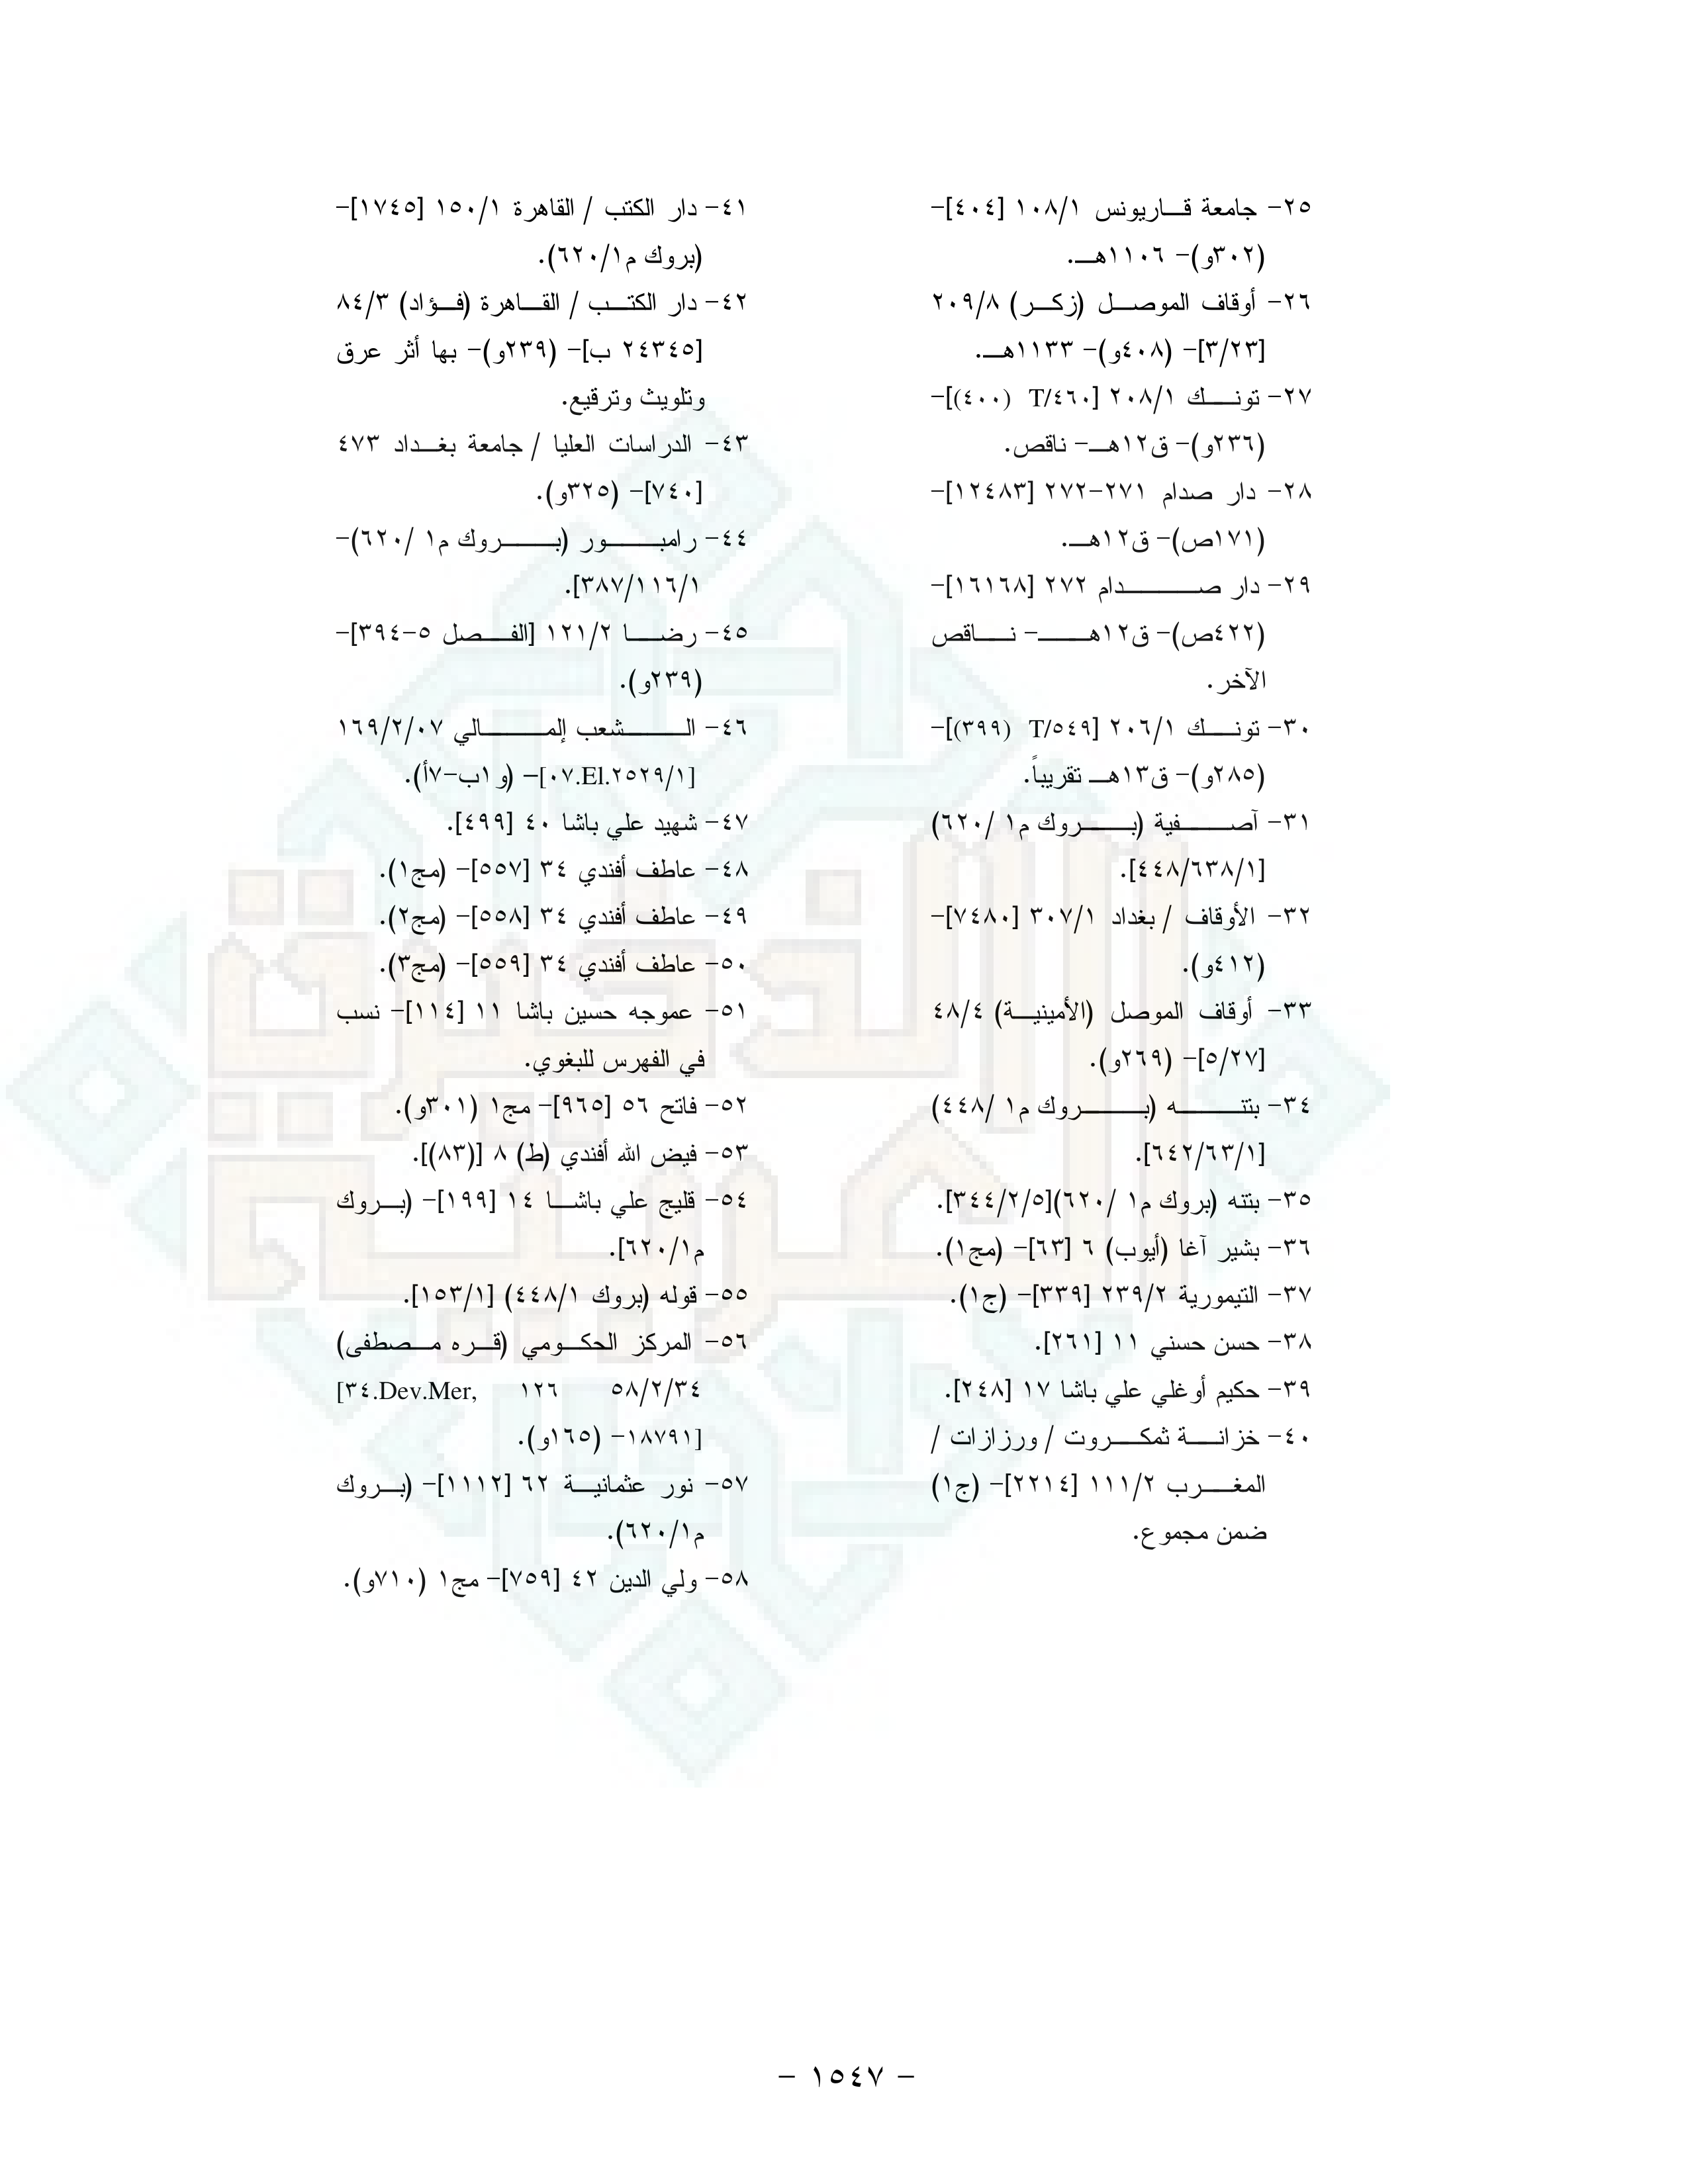 ٢٥- جامعة قاريونس ١٠٨/١ [٤٠٤]-
(٣٠٢و)- ١١٠٦هـ.
٢٦- أوقاف الموصل (زكر) ٢٠٩/٨
[٣/٢٣]- (٤٠٨و)- ١١٣٣هـ.
٢٧- تونك ٢٠٨/١ [T/٤٦٠ (٤٠٠)]-
(٢٣٦و)- ق١٢هـ- ناقص.
٢٨- دار صدام ٢٧١-٢٧٢ [١٢٤٨٣]-
(١٧١ص)- ق١٢هـ.
٢٩- دار صدام ٢٧٢ [١٦١٦٨]-
(٤٢٢ص)- ق١٢هـ- ناقص
الآخر.
٣٠- تونك ٢٠٦/١ [T/٥٤٩ (٣٩٩)]-
(٢٨٥و)- ق١٣هـ تقريباً.
٣١- آصفية (بروك م١ /٦٢٠)
[٤٤٨/٦٣٨/١].
٣٢- الأوقاف / بغداد ٣٠٧/١ [٧٤٨٠]-
(٤١٢و).
٣٣- أوقاف الموصل (الأمينية) ٤٨/٤
[٥/٢٧]- (٢٦٩و).
٣٤- بتته (بروك م١ /٤٤٨)
[٦٤٢/٦٣/١].
٣٥- بتته (بروك م١ /٦٢٠)[٣٤٤/٢/٥].
٣٦- بشير آغا (أيوب) ٦ [٦٣]- (مج١).
٣٧- التيمورية ٢٣٩/٢ [٣٣٩]- (ج١).
٣٨- حسن حسني ١١ [٢٦١].
٣٩- حكيم أوغلي علي باشا ١٧ [٢٤٨].
٤٠- خزانة ثمكروت / ورزازات /
المغرب ١١١/٢ [٢٢١٤]- (ج١)
ضمن مجموع.
٤١- دار الكتب / القاهرة ١٥٠/١ [١٧٤٥]-
(بروك م٦٢٠/١).
٤٢- دار الكتب / القاهرة (فؤاد) ٨٤/٣
[٢٤٣٤٥ ب]- (٢٣٩و)- بها أثر عرق
وتلويث وترقيع.
٤٣- الدراسات العليا / جامعة بغداد ٤٧٣
[٧٤٠]- (٣٢٥و).
٤٤- رامبور (بروك م١ /٦٢٠)-
٣٨٧/١١٦/١].
٤٥- رضا ١٢١/٢ [الفصل ٥-٣٩٤]-
(٢٣٩و).
٤٦- الشعب إلمالي ١٦٩/٢/٠٧
[٠٧.El.٢٥٢٩/١]- (و١ب-٧أ).
٤٧- شهيد علي باشا ٤٠ [٤٩٩].
٤٨- عاطف أفندي ٣٤ [٥٥٧]- (مج١).
٤٩- عاطف أفندي ٣٤ [٥٥٨]- (مج٢).
٥٠- عاطف أفندي ٣٤ [٥٥٩]- (مج٣).
٥١- عموجه حسين باشا ١١ [١١٤]- نسب
في الفهرس للبغوي.
٥٢- فاتح ٥٦ [٩٦٥]- مج١ (٣٠١و).
٥٣- فيض الله أفندي (ط) ٨ [(٨٣)].
٥٤- قليج علي باشا ١٤ [١٩٩]- (بروك
م٦٢٠/١].
٥٥- قوله (بروك ٤٤٨/١) [١٥٣/١].
٥٦- المركز الحكومي (قره مصطفى)
٥٨/٢/٣٤ ١٢٦ ,٣٤.Dev.Mer]
[١٨٧٩١- (١٦٥و).
٥٧- نور عثمانية ٦٢ [١١١٢]- (بروك
م٦٢٠/١).
٥٨- ولي الدين ٤٢ [٧٥٩]- مج١ (٧١٠و).
الذخيرة
العربية
- ١٥٤٧ -